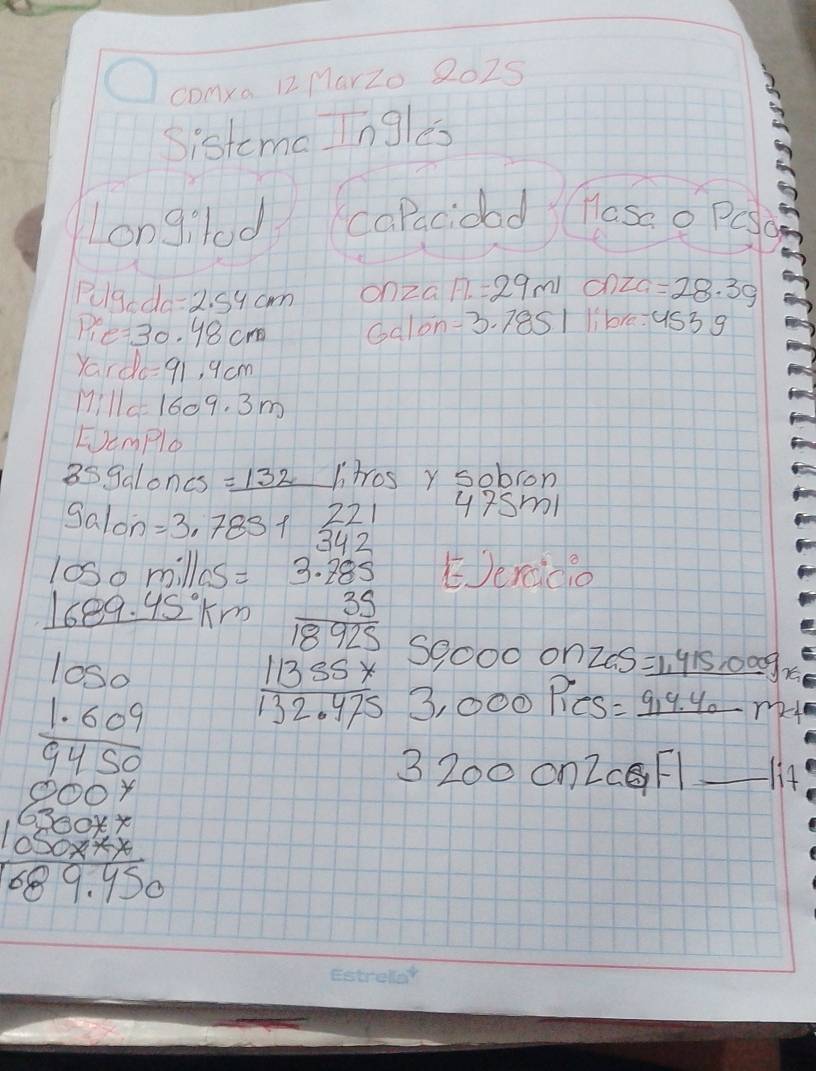 CDMXa 12 Marzo 2025
Sistema Inglés
Longitud Capacidad Masa o Peso
Pulgada=2.54 cm onza Fl.=29ml onza=28.3g
Pie=30.48 cm Galón=3.785 l libra=453g
Yarda=91.4cm
Milla=1609.3m
Ejemplo
35 galones = 132 litros y sobran
475ml
galón=3.785 l 221
342
1050 millas= 3.785 Ejercicio
1689.45 Km 35
18925 50000 onzas=1,415,000g
1050 11355* 3,000 Pies= 914.40 mt
1.609 132.475
9450 3200 onzas Fl ___ lit
000*
6300**
1050***
1689.450
Estrella